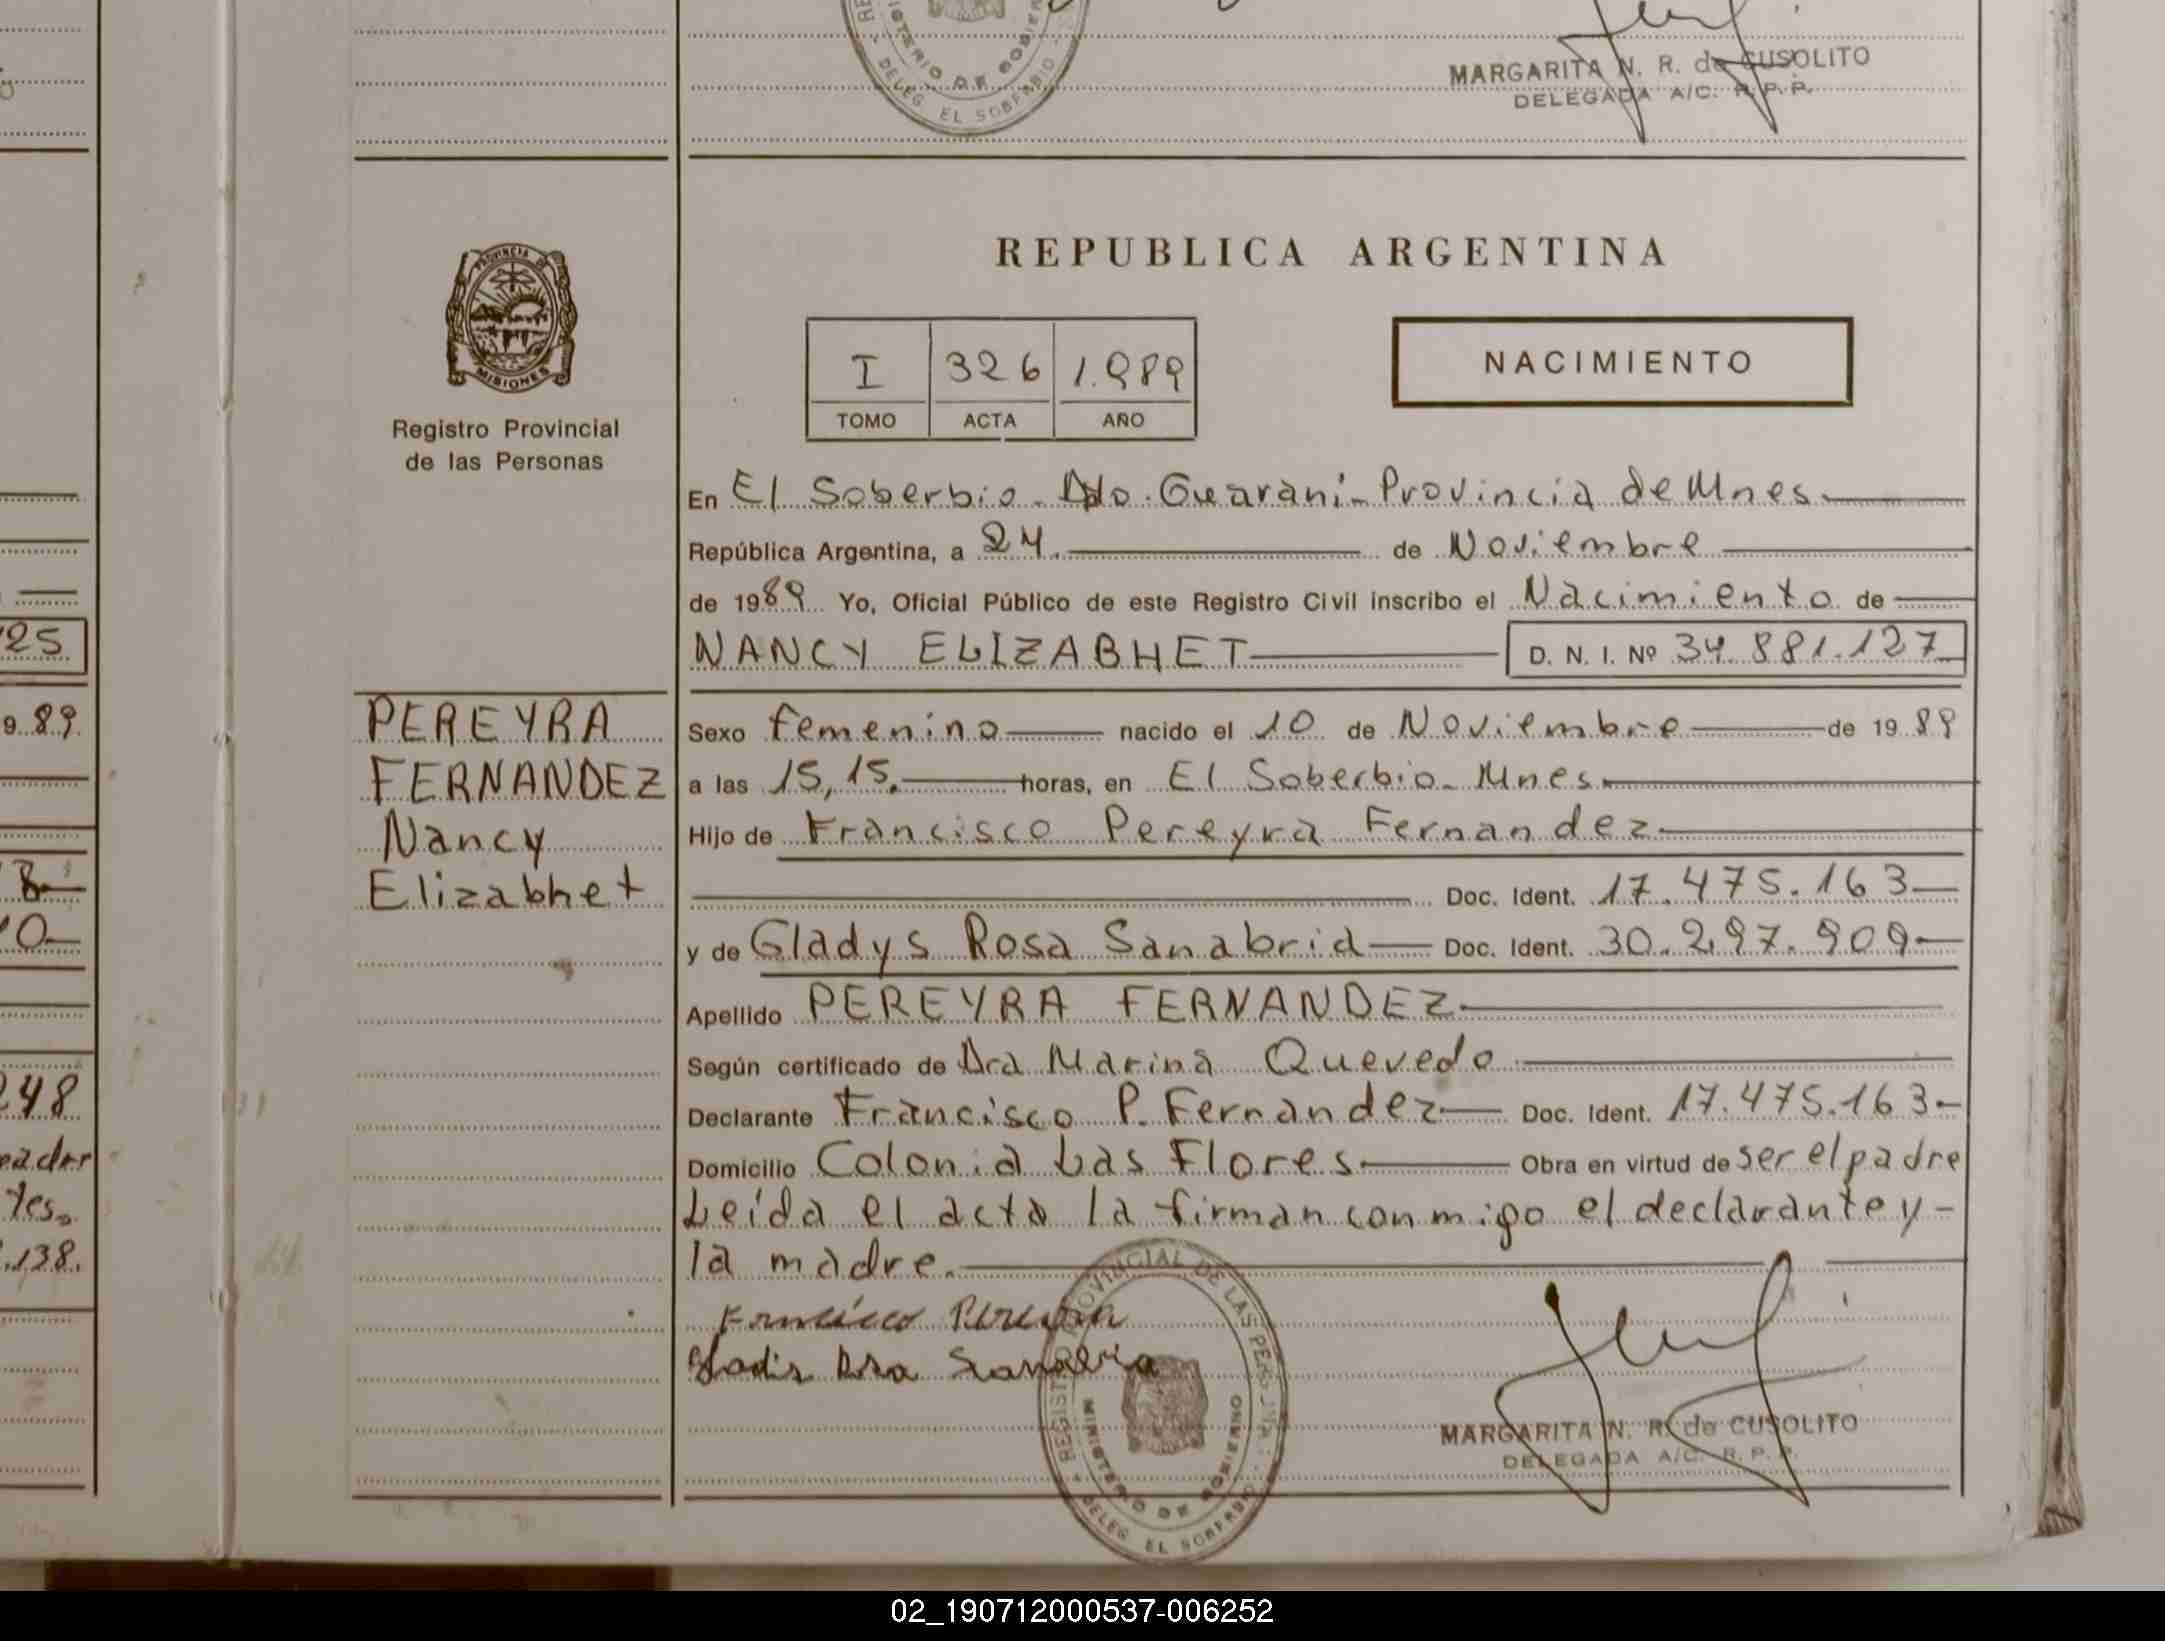 MARGARITA N. R. de CUSOLITO
DELEGADA A/C. R. P. P.
MINISTERIO DE GOBIERNO
DELEG. EL SOBERBIO
25
9 89
248
tes.
.138.
PROVINCIA DE
MISIONES
Registro Provincial
de las Personas
REPUBLICA ARGENTINA
I 326 1.989
TOMO ACTA AÑO
NACIMIENTO
En El Soberbio. Dpto. Guaraní- Provincia de Mnes.
República Argentina, a 24. de Noviembre
de 1989 Yo, Oficial Público de este Registro Civil inscribo el Nacimiento de
NANCY ELIZABHET D. N. I. Nº 34.881.127
PEREYRA
FERNANDEZ
Nancy
Elizabhet
Sexo femenino nacido el 10 de Noviembre de 1989
a las 15,15. horas, en El Soberbio- Mnes.
Hijo de Francisco Pereyra Fernandez
Doc. Ident. 17.475.163
y de Gladys Rosa Sanabria Doc. Ident. 30.297.909
Apellido PEREYRA FERNANDEZ
Según certificado de Dra Marina Quevedo
Declarante Francisco P. Fernandez Doc. Ident. 17.475.163-
Domicilio Colonia Las Flores Obra en virtud de ser el padre
Leída el acta la firman conmigo el declarante y -
la madre.
Francisco Pereyra
Gladis Rosa Sanabria
REGISTRO PROVINCIAL DE LAS PERSONAS
MINISTERIO DE GOBIERNO
DELEG. EL SOBERBIO
MARGARITA N. R. de CUSOLITO
DELEGADA A/C. R. P. P.
02_190712000537-006252